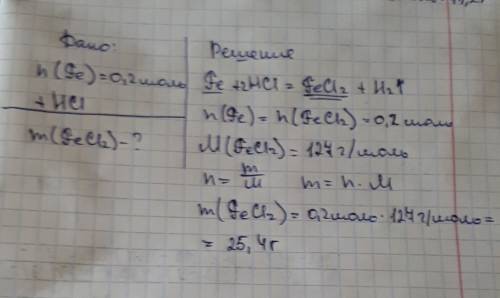 Дано:
n(Fe)=0,2моль
+ HCl
m(FeCl₂)-?
Решение
Fe +2HCl = FeCl₂ + H₂↑
n(Fe) = n(FeCl₂) = 0,2моль
M(FeCl₂) = 127г/моль
n = m/M m = n·M
m(FeCl₂) = 0,2моль·127г/моль=
= 25,4г